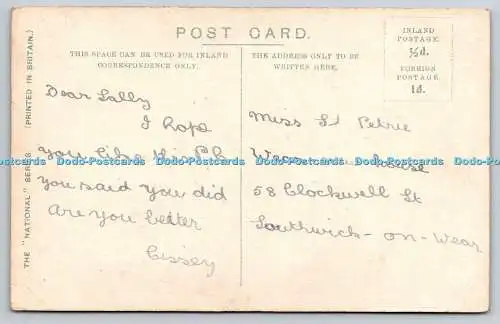 POST CARD.
THIS SPACE CAN BE USED FOR INLAND
CORRESPONDENCE ONLY.
THE ADDRESS ONLY TO BE
WRITTEN HERE.
INLAND
POSTAGE.
½d.
FOREIGN
POSTAGE.
1d.
THE "NATIONAL" SERIES
(PRINTED IN BRITAIN.)
Dear Sally
I hope
you like this P.C.
you said you did
are you better
Cissey
Miss S Petrie
House
58 Clockwell St
Southwick-on-Wear
Dodo-Postcards Dodo-Postcards Dodo-Postcards Dodo-Postcards Dodo-Postcards